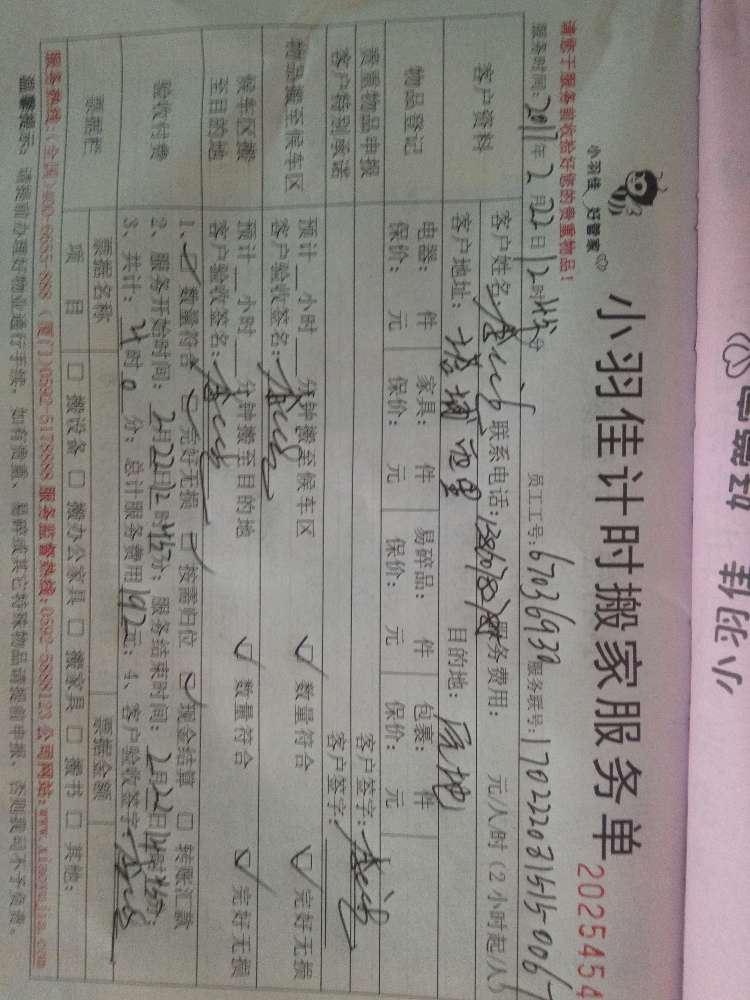 小羽佳 好管家
小羽佳计时搬家服务单
2025454
请您于服务前收拾好您的贵重物品！
服务时间：2017年2月22日12时45分 员工工号：67036930 服务联号：
客户资料
客户姓名： 联系电话： 服务费用： 元/人/时（2小时起/人）
客户地址： 目的地：原地
物品登记
电器： 件 家具： 件 易碎品： 件 包裹： 件
保价： 元 保价： 元 保价： 元 保价： 元
贵重物品申报 客户签字：
客户特别承诺 客户签字：
物品搬至候车区
预计 小时 分钟搬至候车区 数量符合 完好无损
客户验收签名：
候车区搬至目的地
预计 小时 分钟搬至目的地 数量符合 完好无损
客户验收签名：
验收付费
1、 数量符合 完好无损 按需归位 现金结算 转账汇款
2、服务开始时间：2月22日12时45分；服务结束时间：2月22日14时45分；
3、共计： 时0分；总计服务费用192元；4、客户验收签字：
票据栏
票据名称 票据金额
项 目 搬设备 搬办公家具 搬家具 搬书 其他：
服务热线：（全国）400-6655-888（厦门）0592-5178888 服务监督热线：0592-5888123 公司网站：www.xiaoyujia.com
温馨提示：请提前办理好物业通行手续，如有贵重、易碎或其它特殊物品请提前申报，否则我司不予负责。
小羽佳